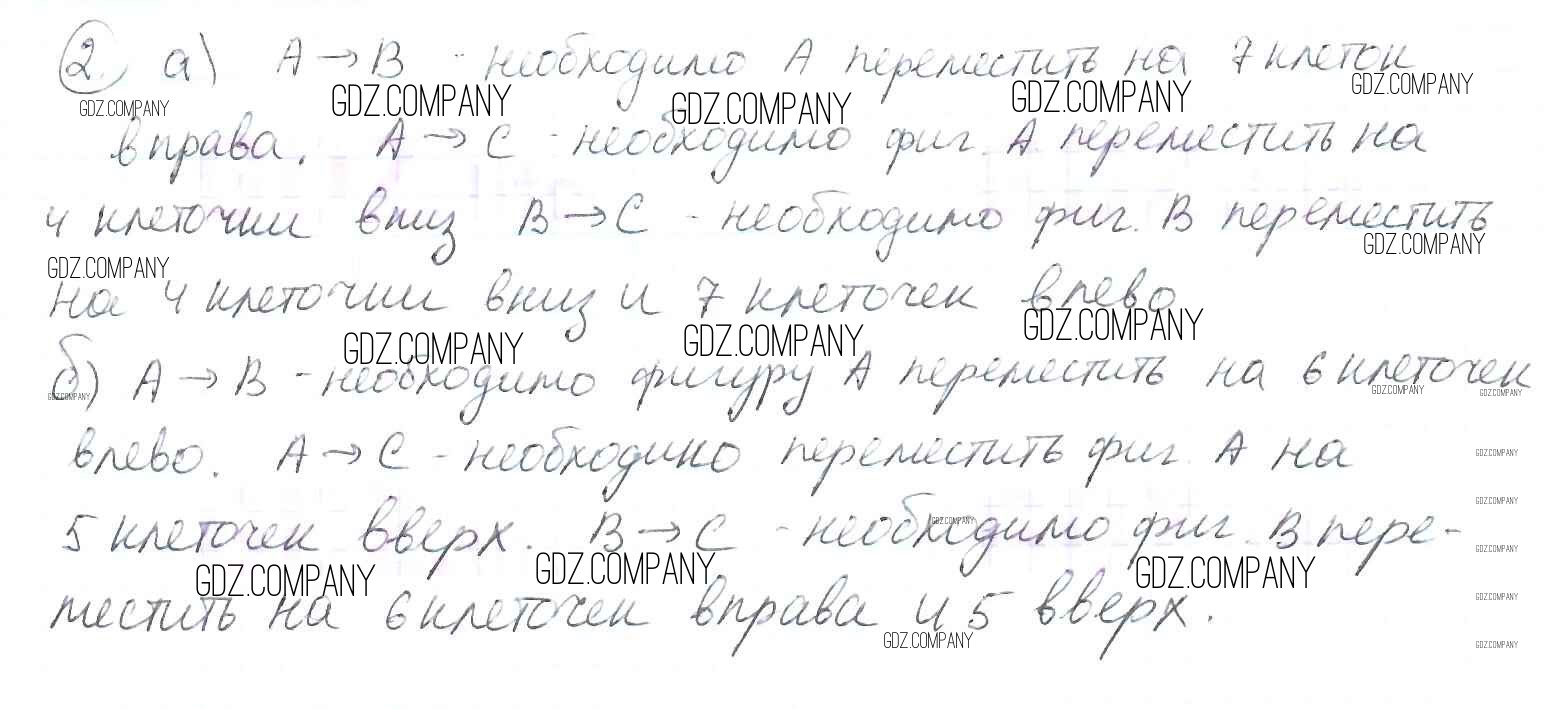 2. а) А → В - необходимо А переместить на 7 клеток
GDZ.COMPANY GDZ.COMPANY GDZ.COMPANY GDZ.COMPANY GDZ.COMPANY
вправа. А → С - необходимо фиг. А переместить на
4 клеточки вниз В → С - необходимо фиг. В переместить
GDZ.COMPANY GDZ.COMPANY
на 4 клеточки вниз и 7 клеточек влево
GDZ.COMPANY GDZ.COMPANY GDZ.COMPANY
б) А → В - необходимо фигуру А переместить на 6 клеточек
GDZ.COMPANY GDZ.COMPANY GDZ.COMPANY
влево. А → С - необходимо переместить фиг. А на
GDZ.COMPANY
GDZ.COMPANY
5 клеточек вверх. В → С - необходимо фиг. В пере-
GDZ.COMPANY GDZ.COMPANY
GDZ.COMPANY GDZ.COMPANY GDZ.COMPANY
местить на 6 клеточек вправа и 5 вверх.
GDZ.COMPANY
GDZ.COMPANY GDZ.COMPANY